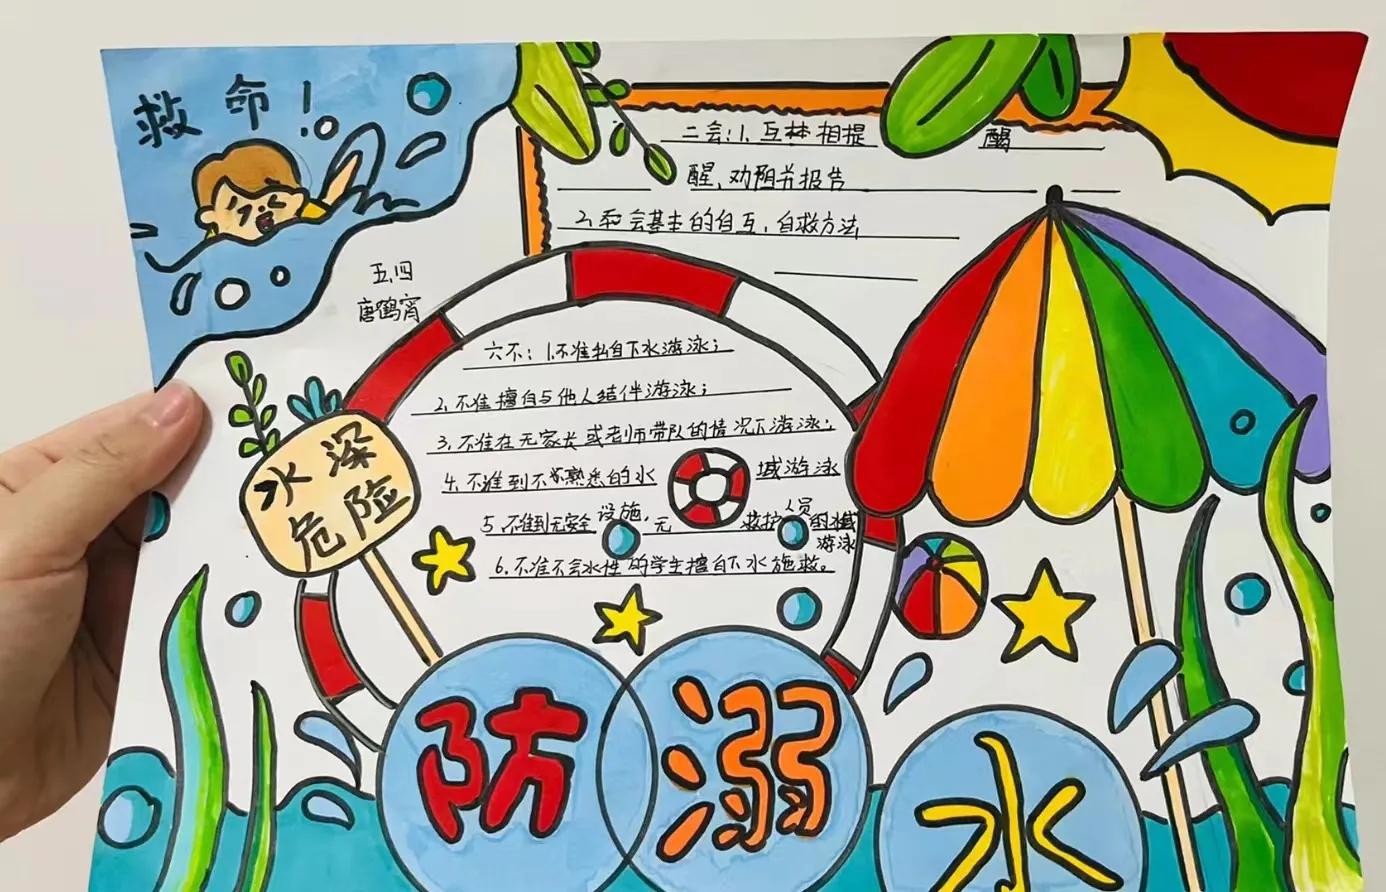 救命!
二会:1.互林相提 醒
醒,劝阻并报告
2.和会基本的自互,自救方法
五.四
唐鹤宵
六不:1.不准私自下水游泳;
2.不准擅自与他人结伴游泳;
3.不准在无家长或老师带队的情况下游泳;
4.不准到不熟悉的水 域游泳
5.不准到无安全设施,无 救护人员的水域
游泳
6.不准不会水性的学生擅自下水施救。
水深
危险
防溺水